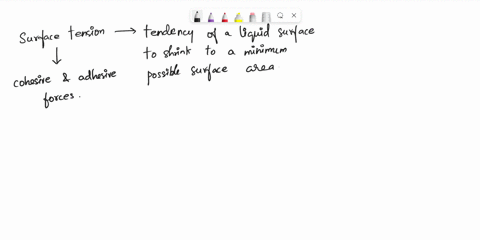 Surface tension → tendency of a liquid surface
to shrink to a minimum
possible surface area
↓
cohesive & adhesive
forces.